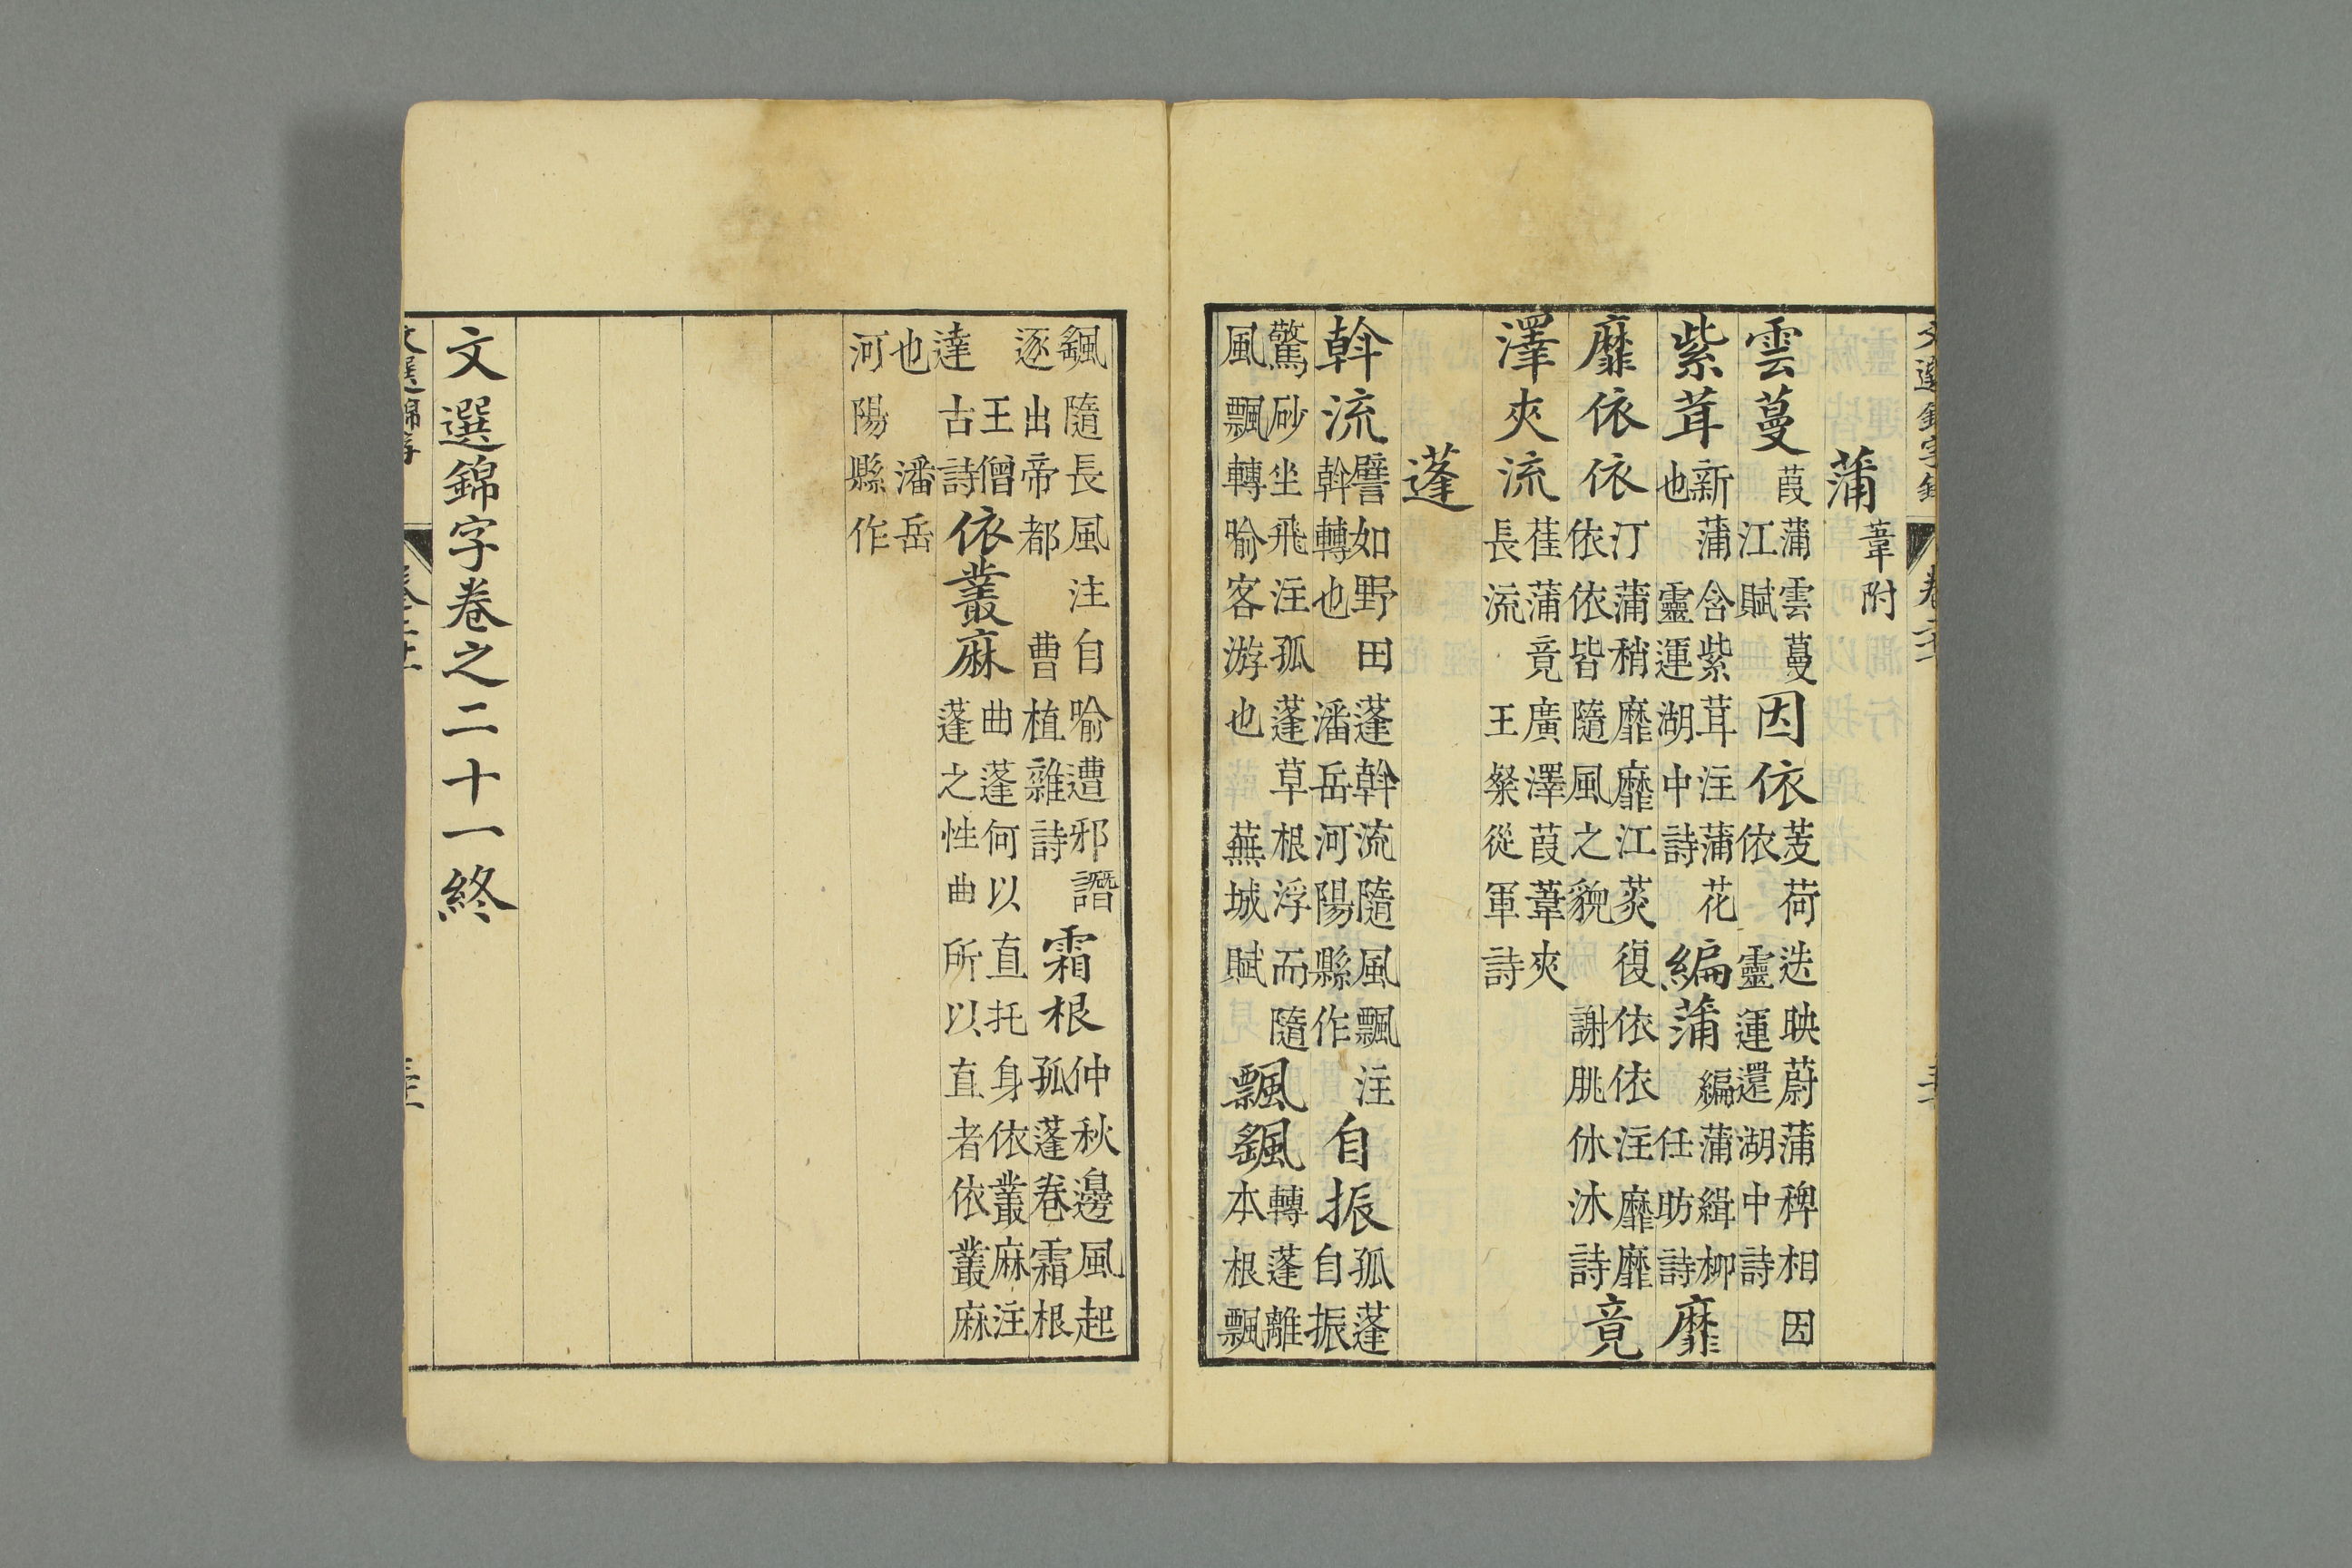 文選錦字錄 卷二十一
蒲 葦附
雲蔓 葭蒲雲蔓 江賦 因依 芰荷迭映蔚蒲稗相因 依 靈運還湖中詩
紫茸 新蒲含紫茸注蒲花 也 靈運湖中詩 編蒲 編蒲緝柳 任昉詩 靡
靡依依 汀蒲稍靡靡江菼復依依注靡靡 依依皆隨風之貌 謝朓休沐詩 竟
澤夾流 萑蒲竟廣澤葭葦夾 長流 王粲從軍詩
蓬
斡流 譬如野田蓬斡流隨風飄注 斡轉也 潘岳河陽縣作 自振 孤蓬 自振
驚砂坐飛注孤蓬草根浮而隨 風飄轉喻客游也 蕪城賦 飄颻 轉蓬離 本根飄
颻隨長風注自喻遭邪譖 逐出帝都 曹植雜詩 霜根 仲秋邊風起 孤蓬卷霜根
王僧 達古詩 依叢麻 曲蓬何以直托身依叢麻注 蓬之性曲所以直者依叢麻
也 潘岳 河陽縣作
文選錦字卷之二十一終